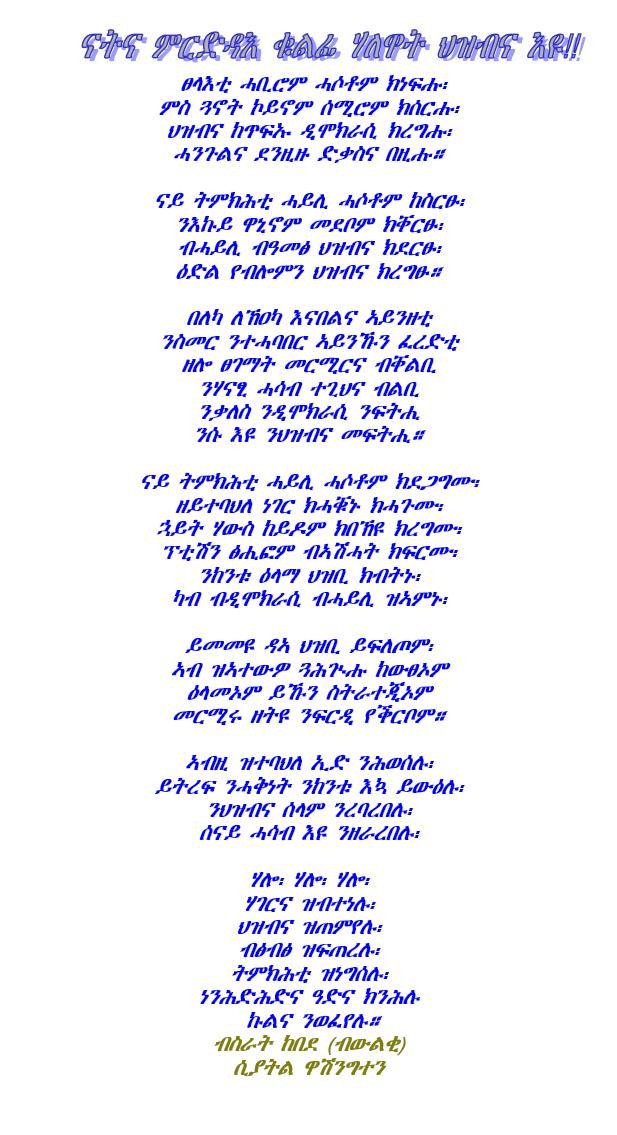 ናትና ምርድዳእ ቁልፊ ሃለዋት ህዝብና እዩ!!
ፀላእቲ ሓቢሮም ሓሶቶም ክነፍሑ፡
ምስ ጓኖት ኮይኖም ሰሚሮም ክሰርሑ፡
ህዝብና ከጥፍኡ ዲሞክራሲ ክረግሑ፡
ሓንጉልና ደንዚዙ ድቃስና በዚሑ።
ናይ ትምክሕቲ ሓይሊ ሓሶቶም ከስርፁ፡
ንእኩይ ዋኒኖም መደቦም ክቐርፁ፡
ብሓይሊ ብዓመፅ ህዝብና ክደርፁ፡
ዕድል የብሎምን ህዝብና ክረግፁ።
በለካ ለኸዐካ እናበልና ኣይንዘቲ
ንስመር ንተሓባበር ኣይንኹን ፈረድቲ
ዘሎ ፀገማት መርሚርና ብቐልቢ
ንሃናፂ ሓሳብ ተጊህና ብልቢ
ንቃለስ ንዲሞክራሲ ንፍትሒ
ንሱ እዩ ንህዝብና መፍትሒ።
ናይ ትምክሕቲ ሓይሊ ሓሶቶም ክደጋግሙ፡
ዘይተባህለ ነገር ክሓቑኑ ክሓጉሙ፡
ኋይት ሃውስ ከይዶም ክበኸዩ ክረግሙ፡
ፐቲሽን ፅሒፎም ብኣሽሓት ክፍርሙ፡
ንከንቱ ዕላማ ህዝቢ ክብትኑ፡
ካብ ብዲሞክራሲ ብሓይሊ ዝኣምኑ፡
ይመመዩ ዳኣ ህዝቢ ይፍለጦም፡
ኣብ ዝኣተውዎ ጓሕጒሑ ከውፀኦም
ዕላመኦም ይኹን ስትራተጂኦም
መርሚሩ ዘትዩ ንፍርዲ የቕርቦም።
ኣብዚ ዝተባህለ ኢድ ንሕወስሉ፡
ይትረፍ ንሓቅነት ንከንቱ እኳ ይውዕሉ፡
ንህዝብና ሰላም ንረባረበሉ፡
ሰናይ ሓሳብ እዩ ንዘራረበሉ፡
ሃሎ፡ ሃሎ፡ ሃሎ፡
ሃገርና ዝብተነሉ፡
ህዝብና ዝጠምየሉ፡
ብፅብፅ ዝፍጠረሉ፡
ትምክሕቲ ዝነግሰሉ፡
ነንሕድሕድና ዓድና ክንሕሉ
ኩልና ንወፈየሉ።
ብስራት ከበደ (ብውልቂ)
ሲያትል ዋሽንግተን